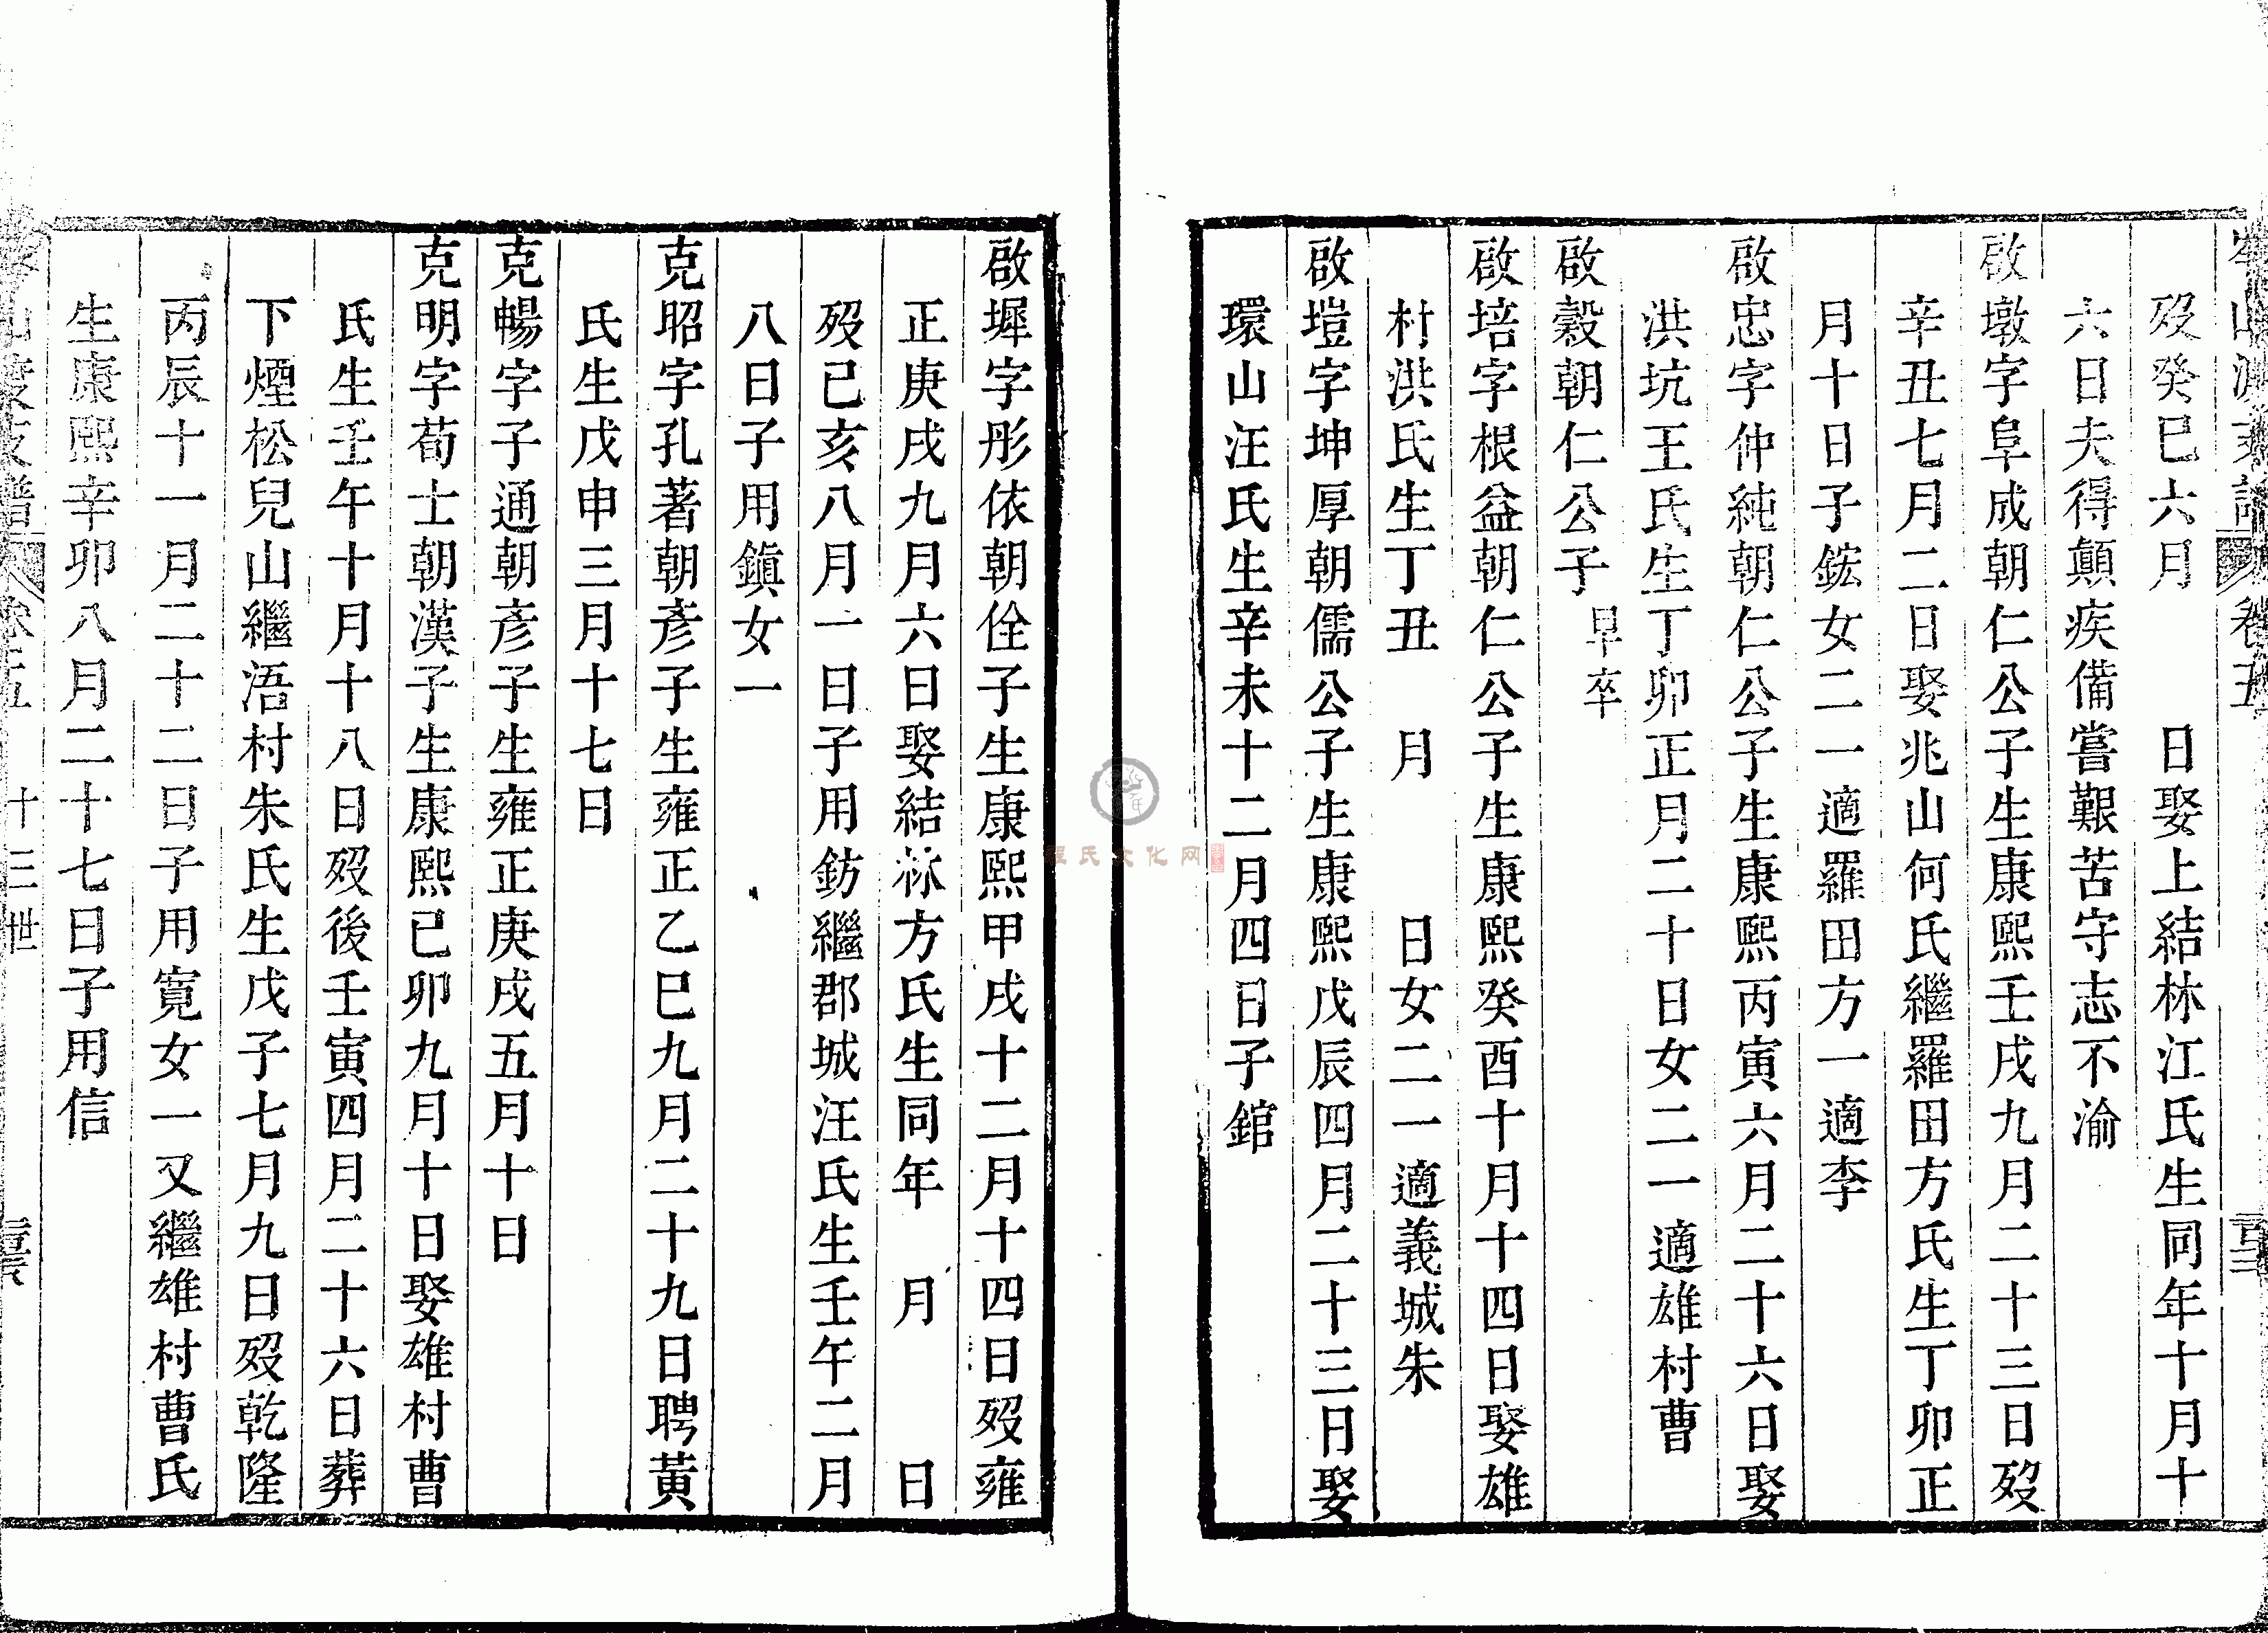 歿癸巳六月　　日娶上結林江氏生同年十月十
六日夫得顛疾備嘗艱苦守志不渝
啟墩字阜成朝仁公子生康熙壬戌九月二十三日歿
辛丑七月二日娶兆山何氏繼羅田方氏生丁卯正
月十日子鋐女二一適羅田方一適李
啟忠字仲純朝仁公子生康熙丙寅六月二十六日娶
洪坑王氏生丁卯正月二十日女二一適雄村曹
啟穀朝仁公子早卒
啟培字根益朝仁公子生康熙癸酉十月十四日娶雄
村洪氏生丁丑　月　　日女二一適義城朱
啟塏字坤厚朝儒公子生康熙戊辰四月二十三日娶
環山汪氏生辛未十二月四日子錧
啟墀字彤依朝佺子生康熙甲戌十二月十四日歿雍
正庚戌九月六日娶結林方氏生同年　月　　日
歿己亥八月一日子用鈁繼郡城汪氏生壬午二月
八日子用鎮女一
克昭字孔著朝彥子生雍正乙巳九月二十九日聘黃
氏生戊申三月十七日
克暢字子通朝彥子生雍正庚戌五月十日
克明字荀士朝漢子生康熙己卯九月十日娶雄村曹
氏生壬午十月十八日歿後壬寅四月二十六日葬
下煙松兒山繼浯村朱氏生戊子七月九日歿乾隆
丙辰十一月二十二日子用寬女一又繼雄村曹氏
生康熙辛卯八月二十七日子用信
卷五　十三世
程氏文化网